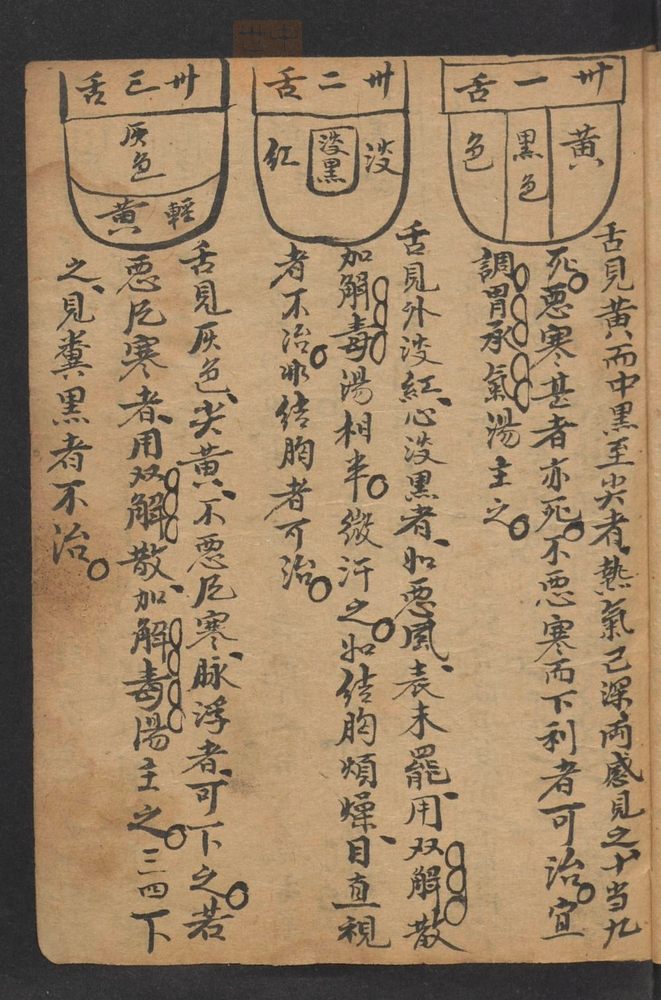 卅一舌
黄
黑色
色
舌見黄而中黒至尖者熱氣已深両感見之十当九
死。惡寒甚者亦死。不惡寒而下利者可治。宜
調胃承氣湯主之。
卅二舌
淡
淡黒
紅
舌見外淡紅、心淡黒者、如惡風、表未罷、用双解散
加解毒湯相半。微汗之。如结胸煩燥、目直視
者不治。非结胸者可治。
卅三舌
灰色
輕
黄
舌見灰色、尖黄、不惡风寒、脉浮者、可下之。若
惡风寒者、用双解散、加解毒湯主之。三四下
之、見糞黒者不治。